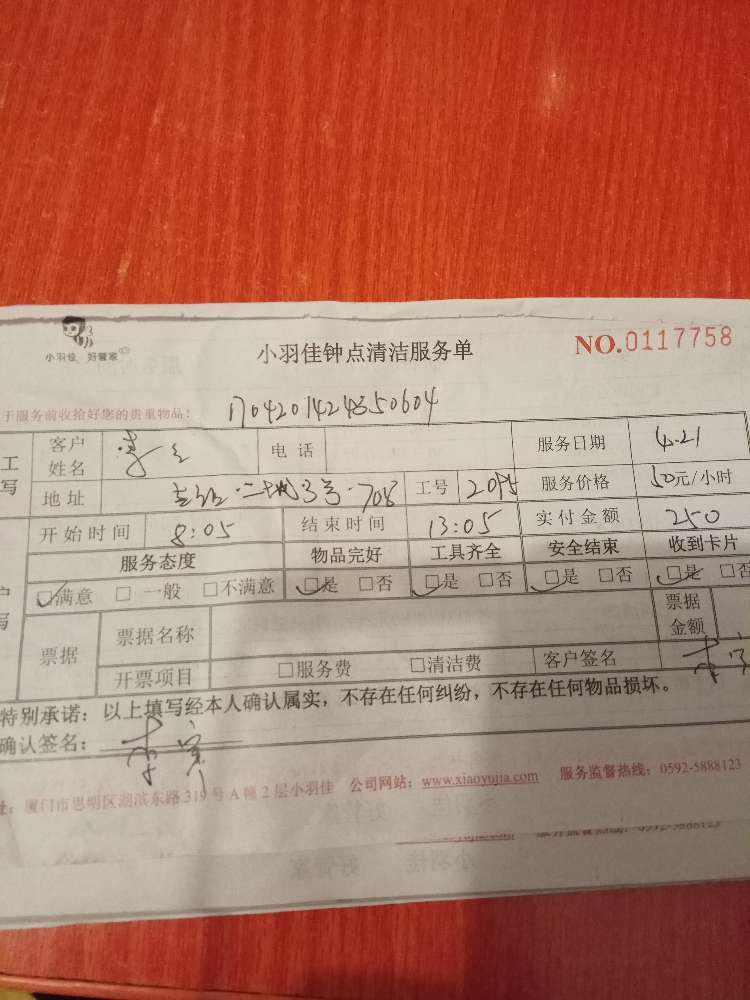 小羽佳 好管家
小羽佳钟点清洁服务单
NO.0117758
于服务前收拾好您的贵重物品：
1704201424350604
工 客户姓名 电话 服务日期 4.21
写 地址 3号 708 工号 2095 服务价格 50元/小时
开始时间 8:05 结束时间 13:05 实付金额 250
服务态度 物品完好 工具齐全 安全结束 收到卡片
☑满意 □一般 □不满意 ☑是 □否 ☑是 □否 ☑是 □否 ☑是 □否
票据 票据名称 票据金额
开票项目 □服务费 □清洁费 客户签名
特别承诺：以上填写经本人确认属实，不存在任何纠纷，不存在任何物品损坏。
确认签名：
址：厦门市思明区湖滨东路319号A幢2层小羽佳 公司网站：www.xiaoyujia.com 服务监督热线：0592-5888123